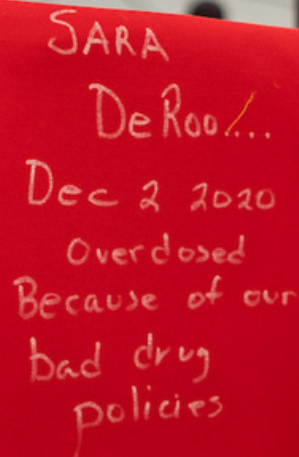 SARA
DeRoo/...
Dec 2 2020
Overdosed
Because of our
bad drug
policies